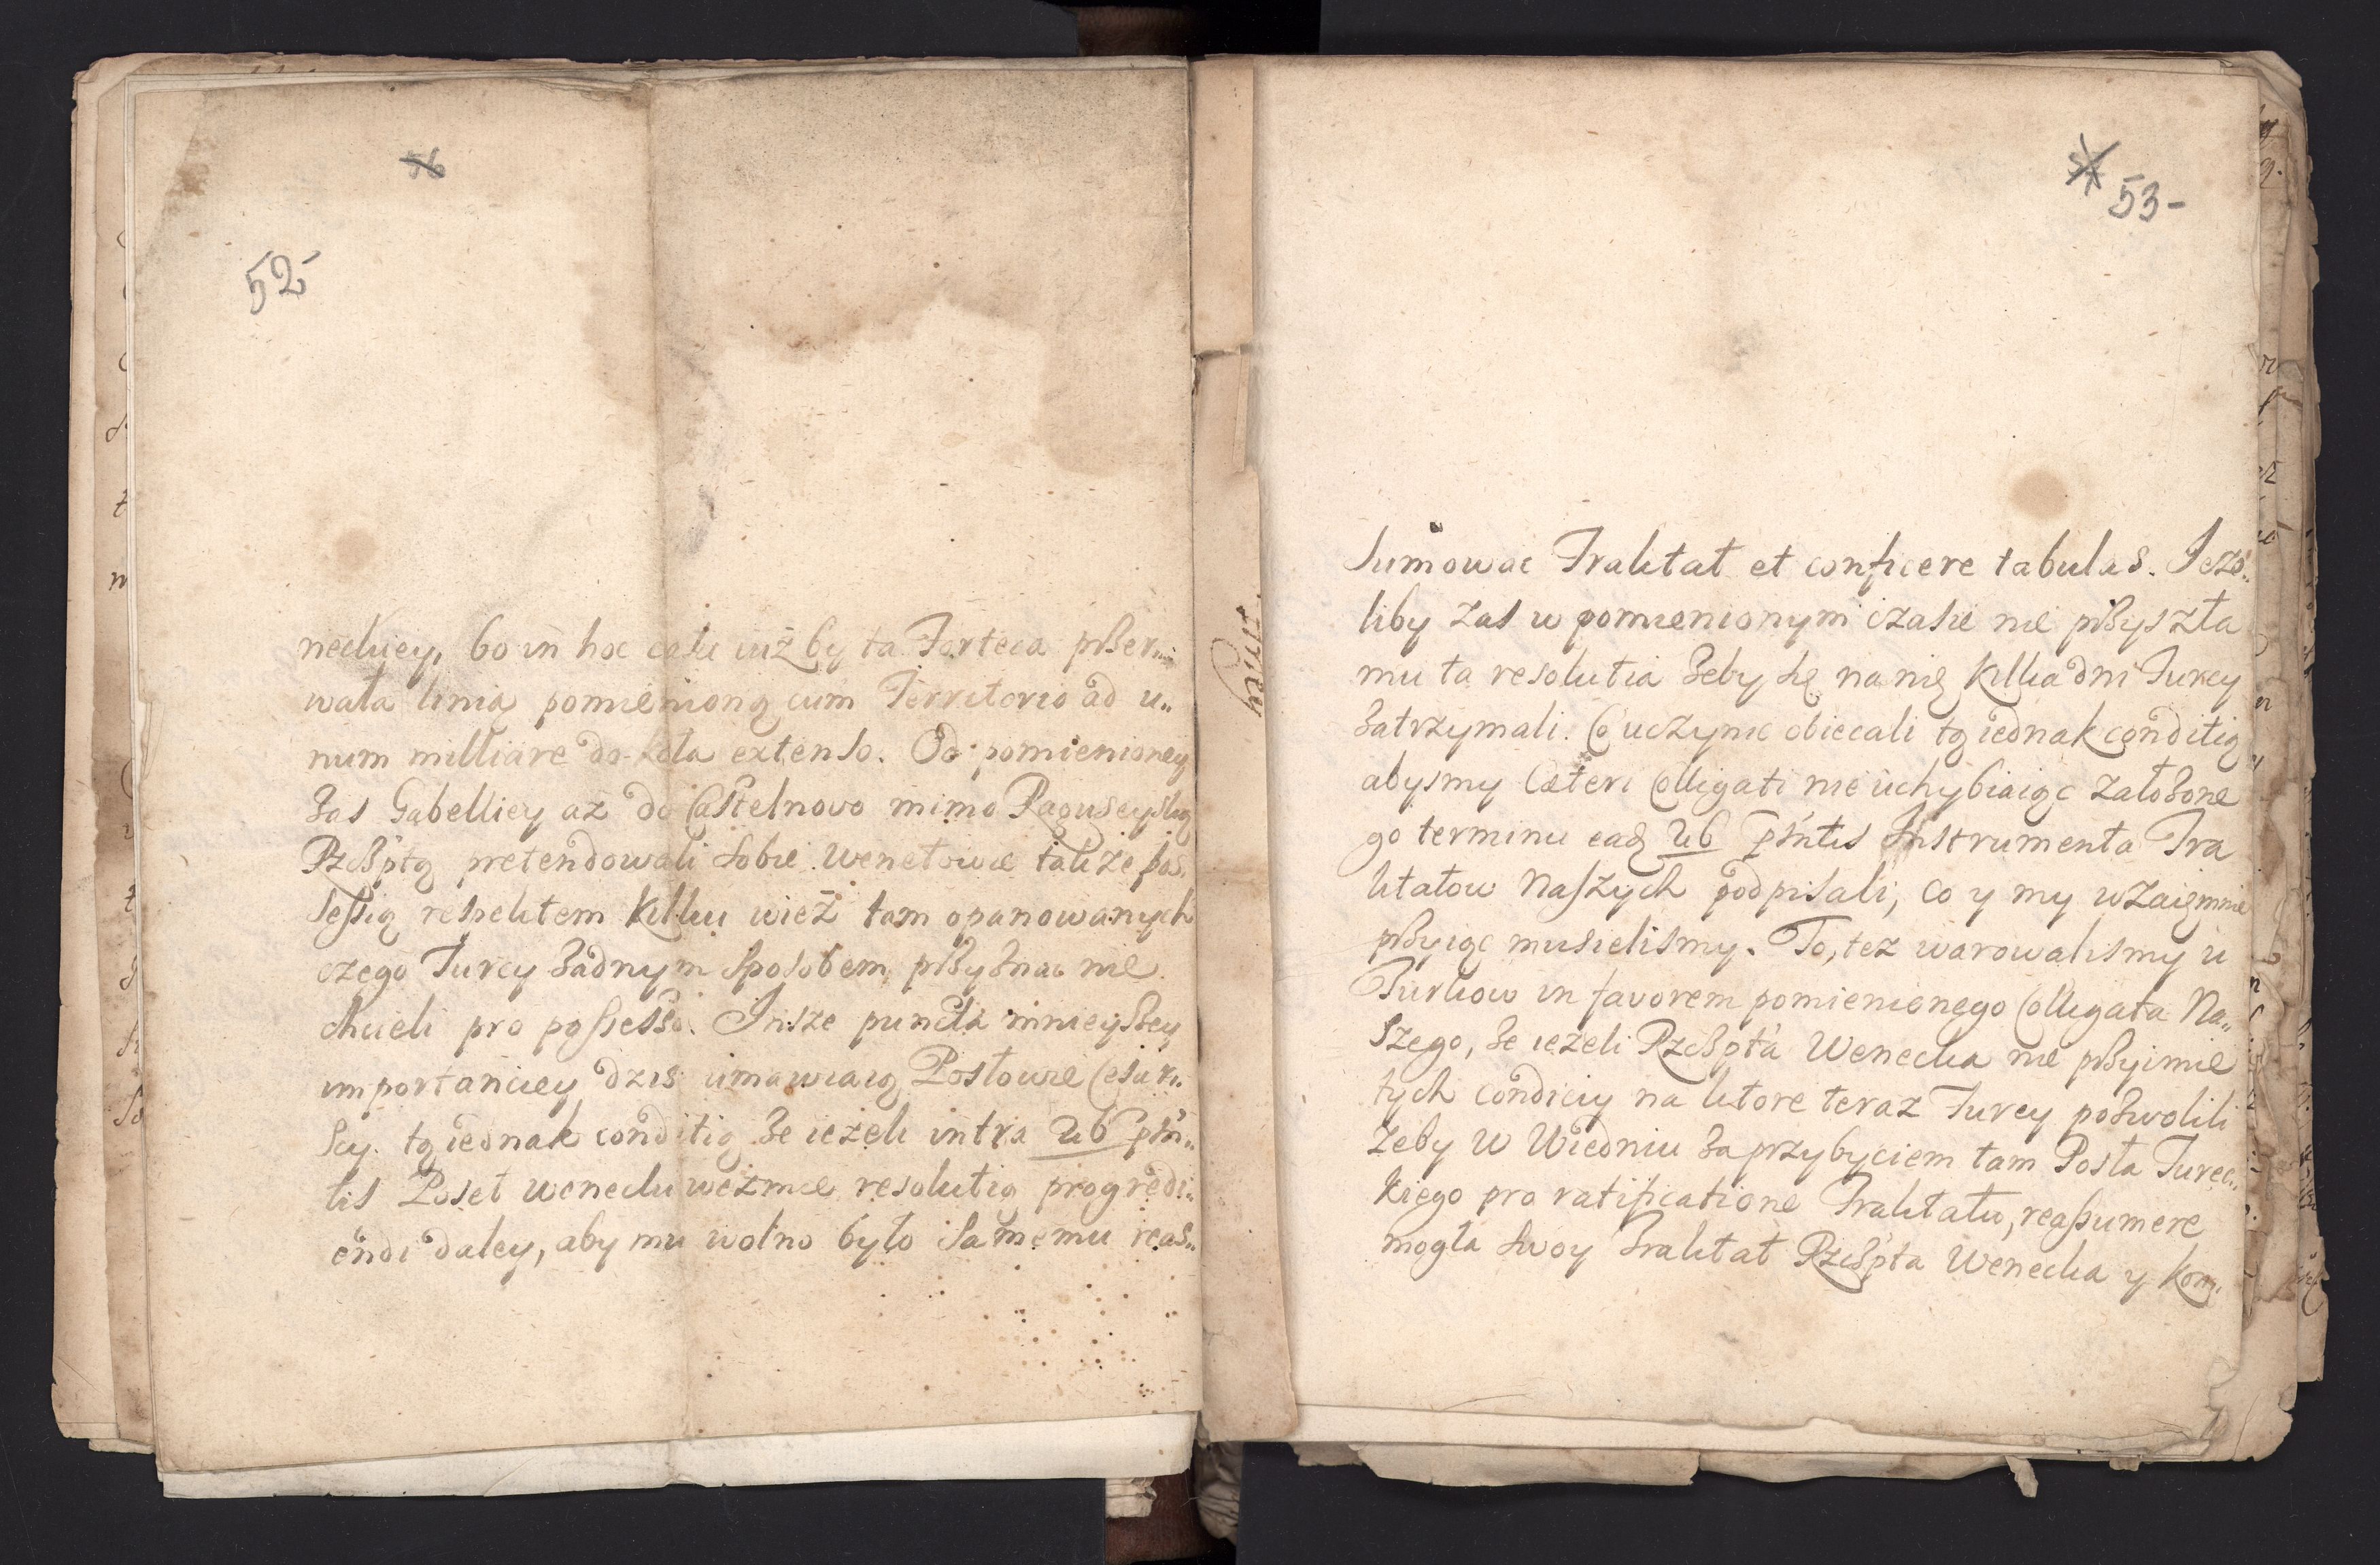 56
52
neckiey, bo in hoc casu iuż by ta Forteca przer„
wała linią pomienioną cum Territorio ad u„
num milliare do koła extenso. Od pomienioney
zas Gabelliey az do Castelnovo mimo Raguseyską
Rzeczptą pretendowali sobie Wenetowie takze pos„
sessią respektem kilku wież tam opanowanych
czego Turcy zadnym sposobem przyznac nie
chcieli pro possesso. Insze puncta mnieyszey
importanciey dzis umawiaią Posłowie Cesar„
scy. tą iednak conditią ze ieżeli intra 26 pśn„
tis Poseł wenecki weźmie resolutią progredi„
endi daley, aby mu wolno było samemu reas„
57
53-
sumowac Traktat et conficere tabulas. Ieze„
liby zas w pomienionym czasie nie przyszła
mu ta resolutia zeby się na nię kilka dni Turcy
zatrzymali. Co uczynic obiecali tą iednak conditią
abysmy Cæteri Colligati nie uchybiaiąc załozone
go terminu ead 26 pśntis Instrumenta Tra
ktatow Naszych podpisali, co y my wzaiemnie
przyiąc musielismy. To, tez warowalismy u
Turkow in favorem pomienionego Colligata Na„
szego, ze ieżeli Rzeczpta Wenecka nie przyimie
tych condiciy na ktore teraz Turcy pozwolili
żeby w Wiedniu za przybyciem tam Posła Turec„
kiego pro ratificatione Traktatu, reassumere
mogła swoy Traktat Rzeczpta Wenecka y kon„